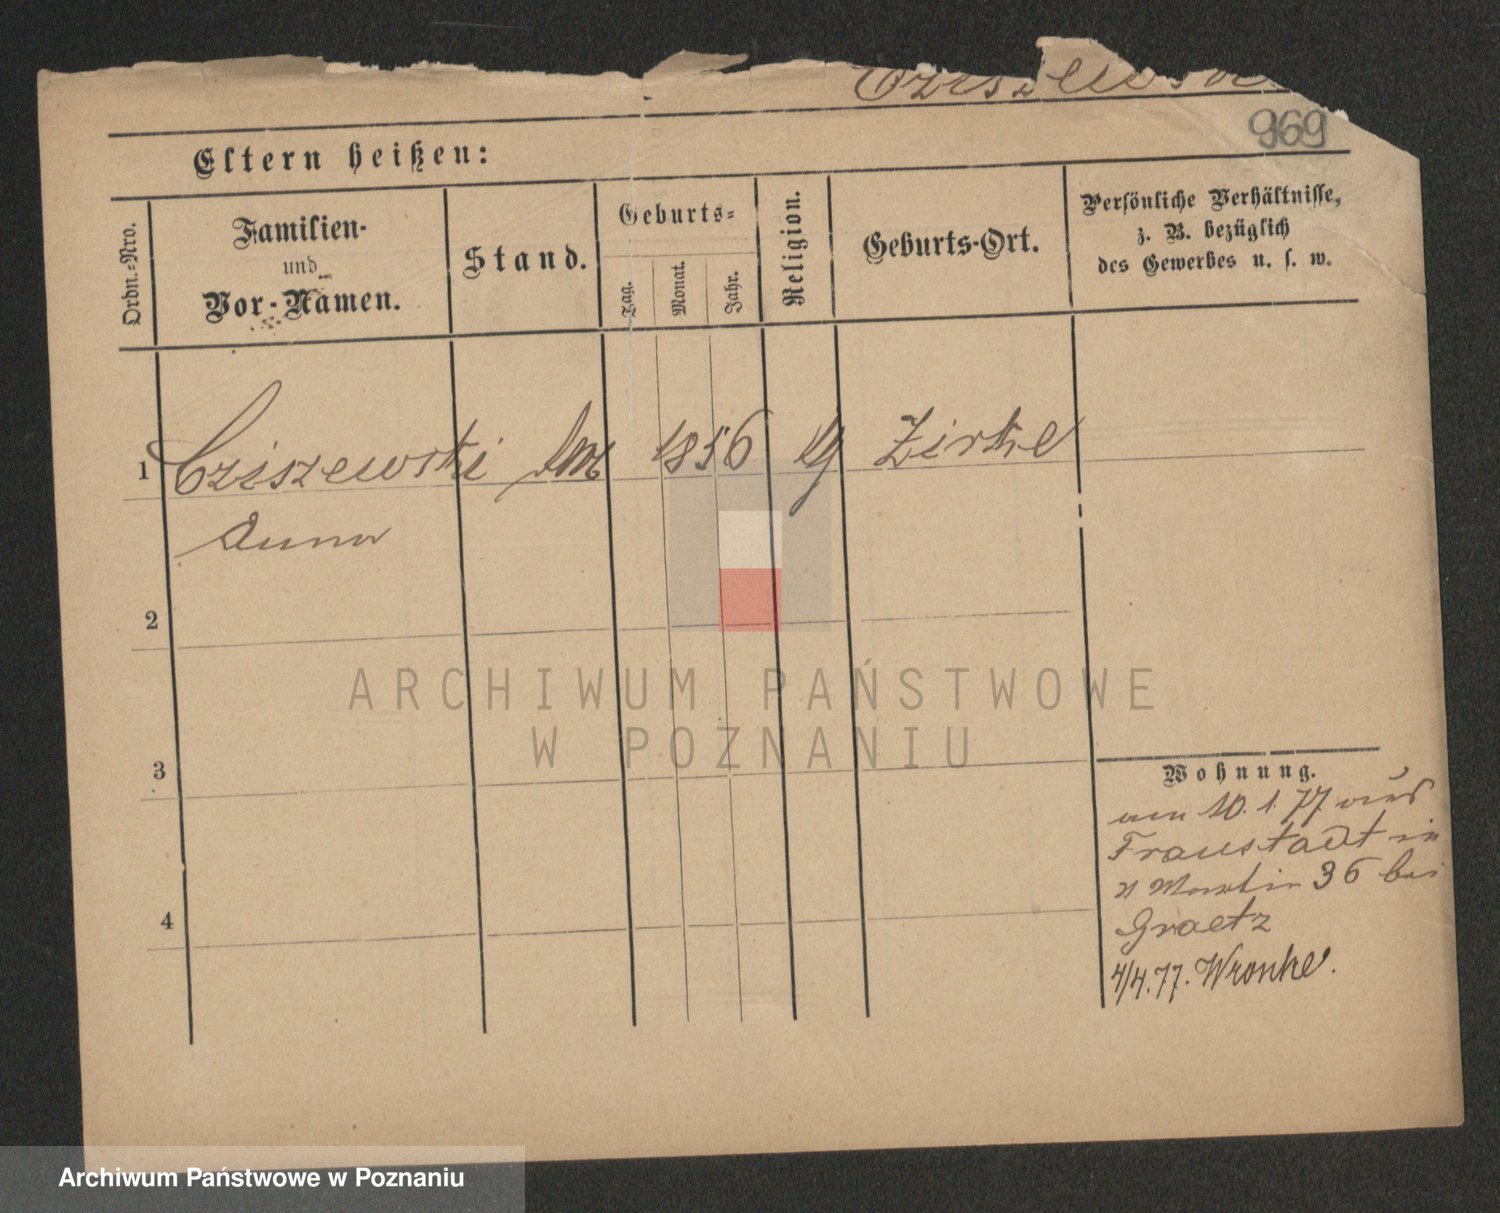 Cziszewski
969
Eltern heißen:
Ordn.-Nro.
Familien-
und
Vor-Namen.
Stand.
Geburts-
Tag.
Monat.
Jahr.
Religion.
Geburts-Ort.
Persönliche Verhältnisse,
z. B. bezüglich
des Gewerbes u. s. w.
1 Cziszewski 1856 Zirke
Anna
2
3
4
Wohnung.
am 10. 1. 77 aus
Fraustadt in
Martin 36 bei
Graetz
4/4. 77. Wronke.
ARCHIWUM PAŃSTWOWE
W POZNANIU
Archiwum Państwowe w Poznaniu